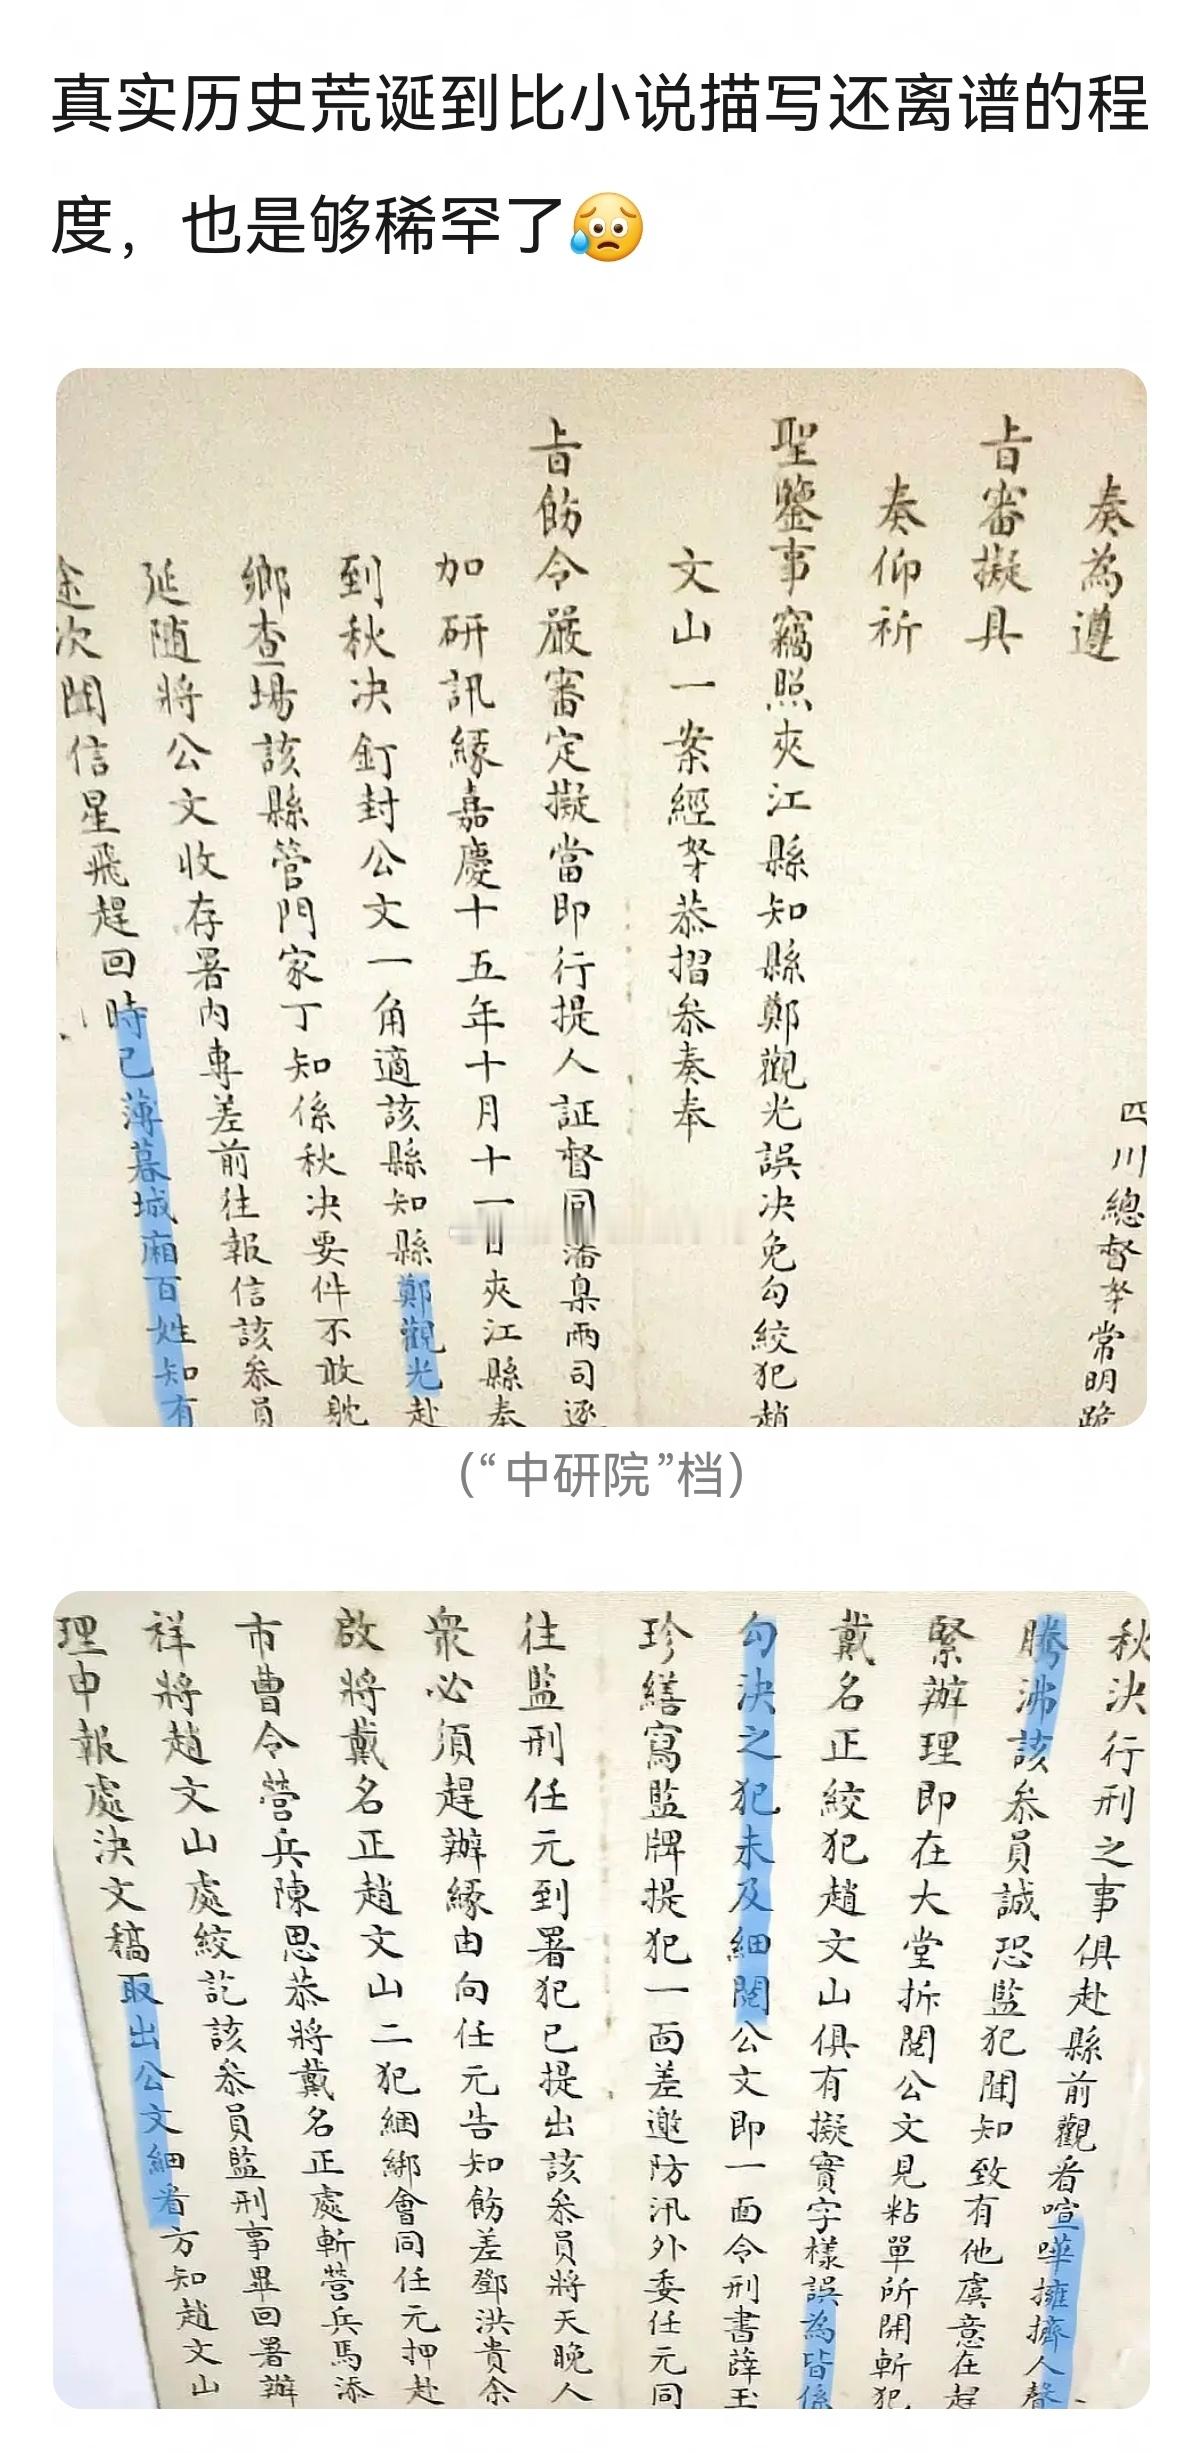 真实历史荒诞到比小说描写还离谱的程
度，也是够稀罕了😥
四川總督奴才常明跪
奏為遵
旨審擬具
奏仰祈
聖鑒事竊照夾江縣知縣鄭觀光誤決免勾絞犯趙
文山一案經奴才恭摺叅奏奉
旨飭令嚴審定擬當即行提人証督同藩臬兩司逐
加研訊緣嘉慶十五年十月十一日夾江縣奉
到秋決釘封公文一角適該縣知縣鄭觀光赴
鄉查場該縣管門家丁知係秋決要件不敢躭
延隨將公文收存署內專差前往報信該叅員
途次聞信星飛趕回時已薄暮城廂百姓知有
（“中研院”档）
秋決行刑之事俱赴縣前觀看喧嘩擁擠人聲
騰沸該叅員誠恐監犯聞知致有他虞意在趕
緊辦理即在大堂拆閱公文見粘單所開斬犯
戴名正絞犯趙文山俱有擬實字樣誤為皆係
勾決之犯未及細閱公文即一面令刑書薛玉
珍繕寫監牌提犯一面差邀防汛外委任元同
往監刑任元到署犯已提出該叅員將天晚人
衆必須趕辦緣由向任元告知飭差鄧洪貴余
啟將戴名正趙文山二犯綑綁會同任元押赴
市曹令營兵陳思恭將戴名正處斬營兵馬添
祥將趙文山處絞訖該叅員監刑事畢回署辦
理申報處決文稿取出公文細看方知趙文山